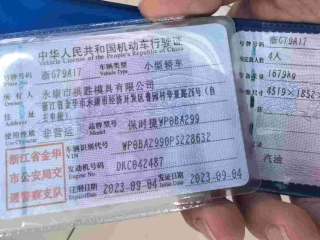 中华人民共和国机动车行驶证
Vehicle License of the People's Republic of China
号牌号码 浙G79A17 车辆类型 小型轿车
Plate No. Vehicle Type
永康市祺胜模具有限公司
浙江省金华永康市经济开发区
使用性质 非营运 品牌型号 保时捷WP0BA299
浙江省金华
市公安局交
通警察支队
车辆识别代号 WP0BA2990PS228632
VIN
发动机号码 DKC042487
Engine No.
注册日期 2023-09-04 发证日期 2023-09-04
号牌号码 浙G79A17
4人
1679kg
4519×1852
汽油